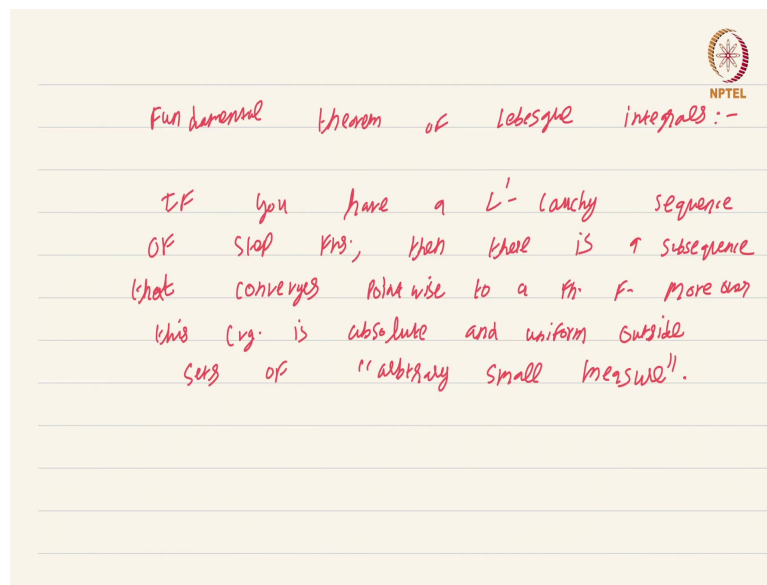 NPTEL
Fundamental theorem of Lebesgue integrals:-
If you have a L¹- Cauchy sequence
of step fns., then there is a subsequence
that converges pointwise to a fn. F. moreover
this cvg. is absolute and uniform outside
sets of "arbitrary small measure".